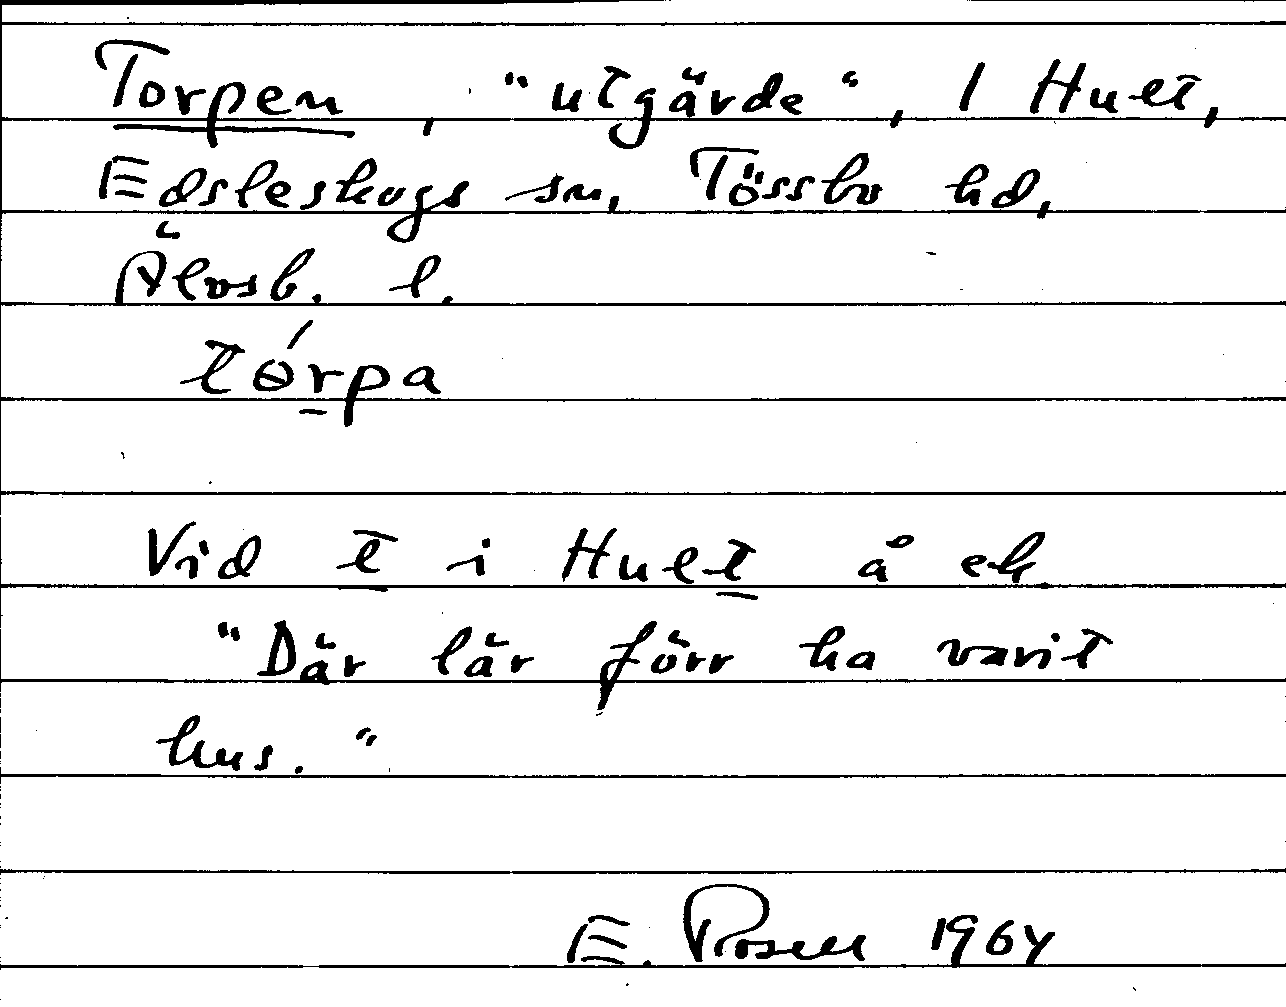 Torpen, "utgärde", 1 Hult,
Edsleskogs sn, Tössbo hd,
Älvsb. l.
tɵ́rpa
Vid t i Hult å ek.
"Där lär förr ha varit
hus."
E. Rosell 1964